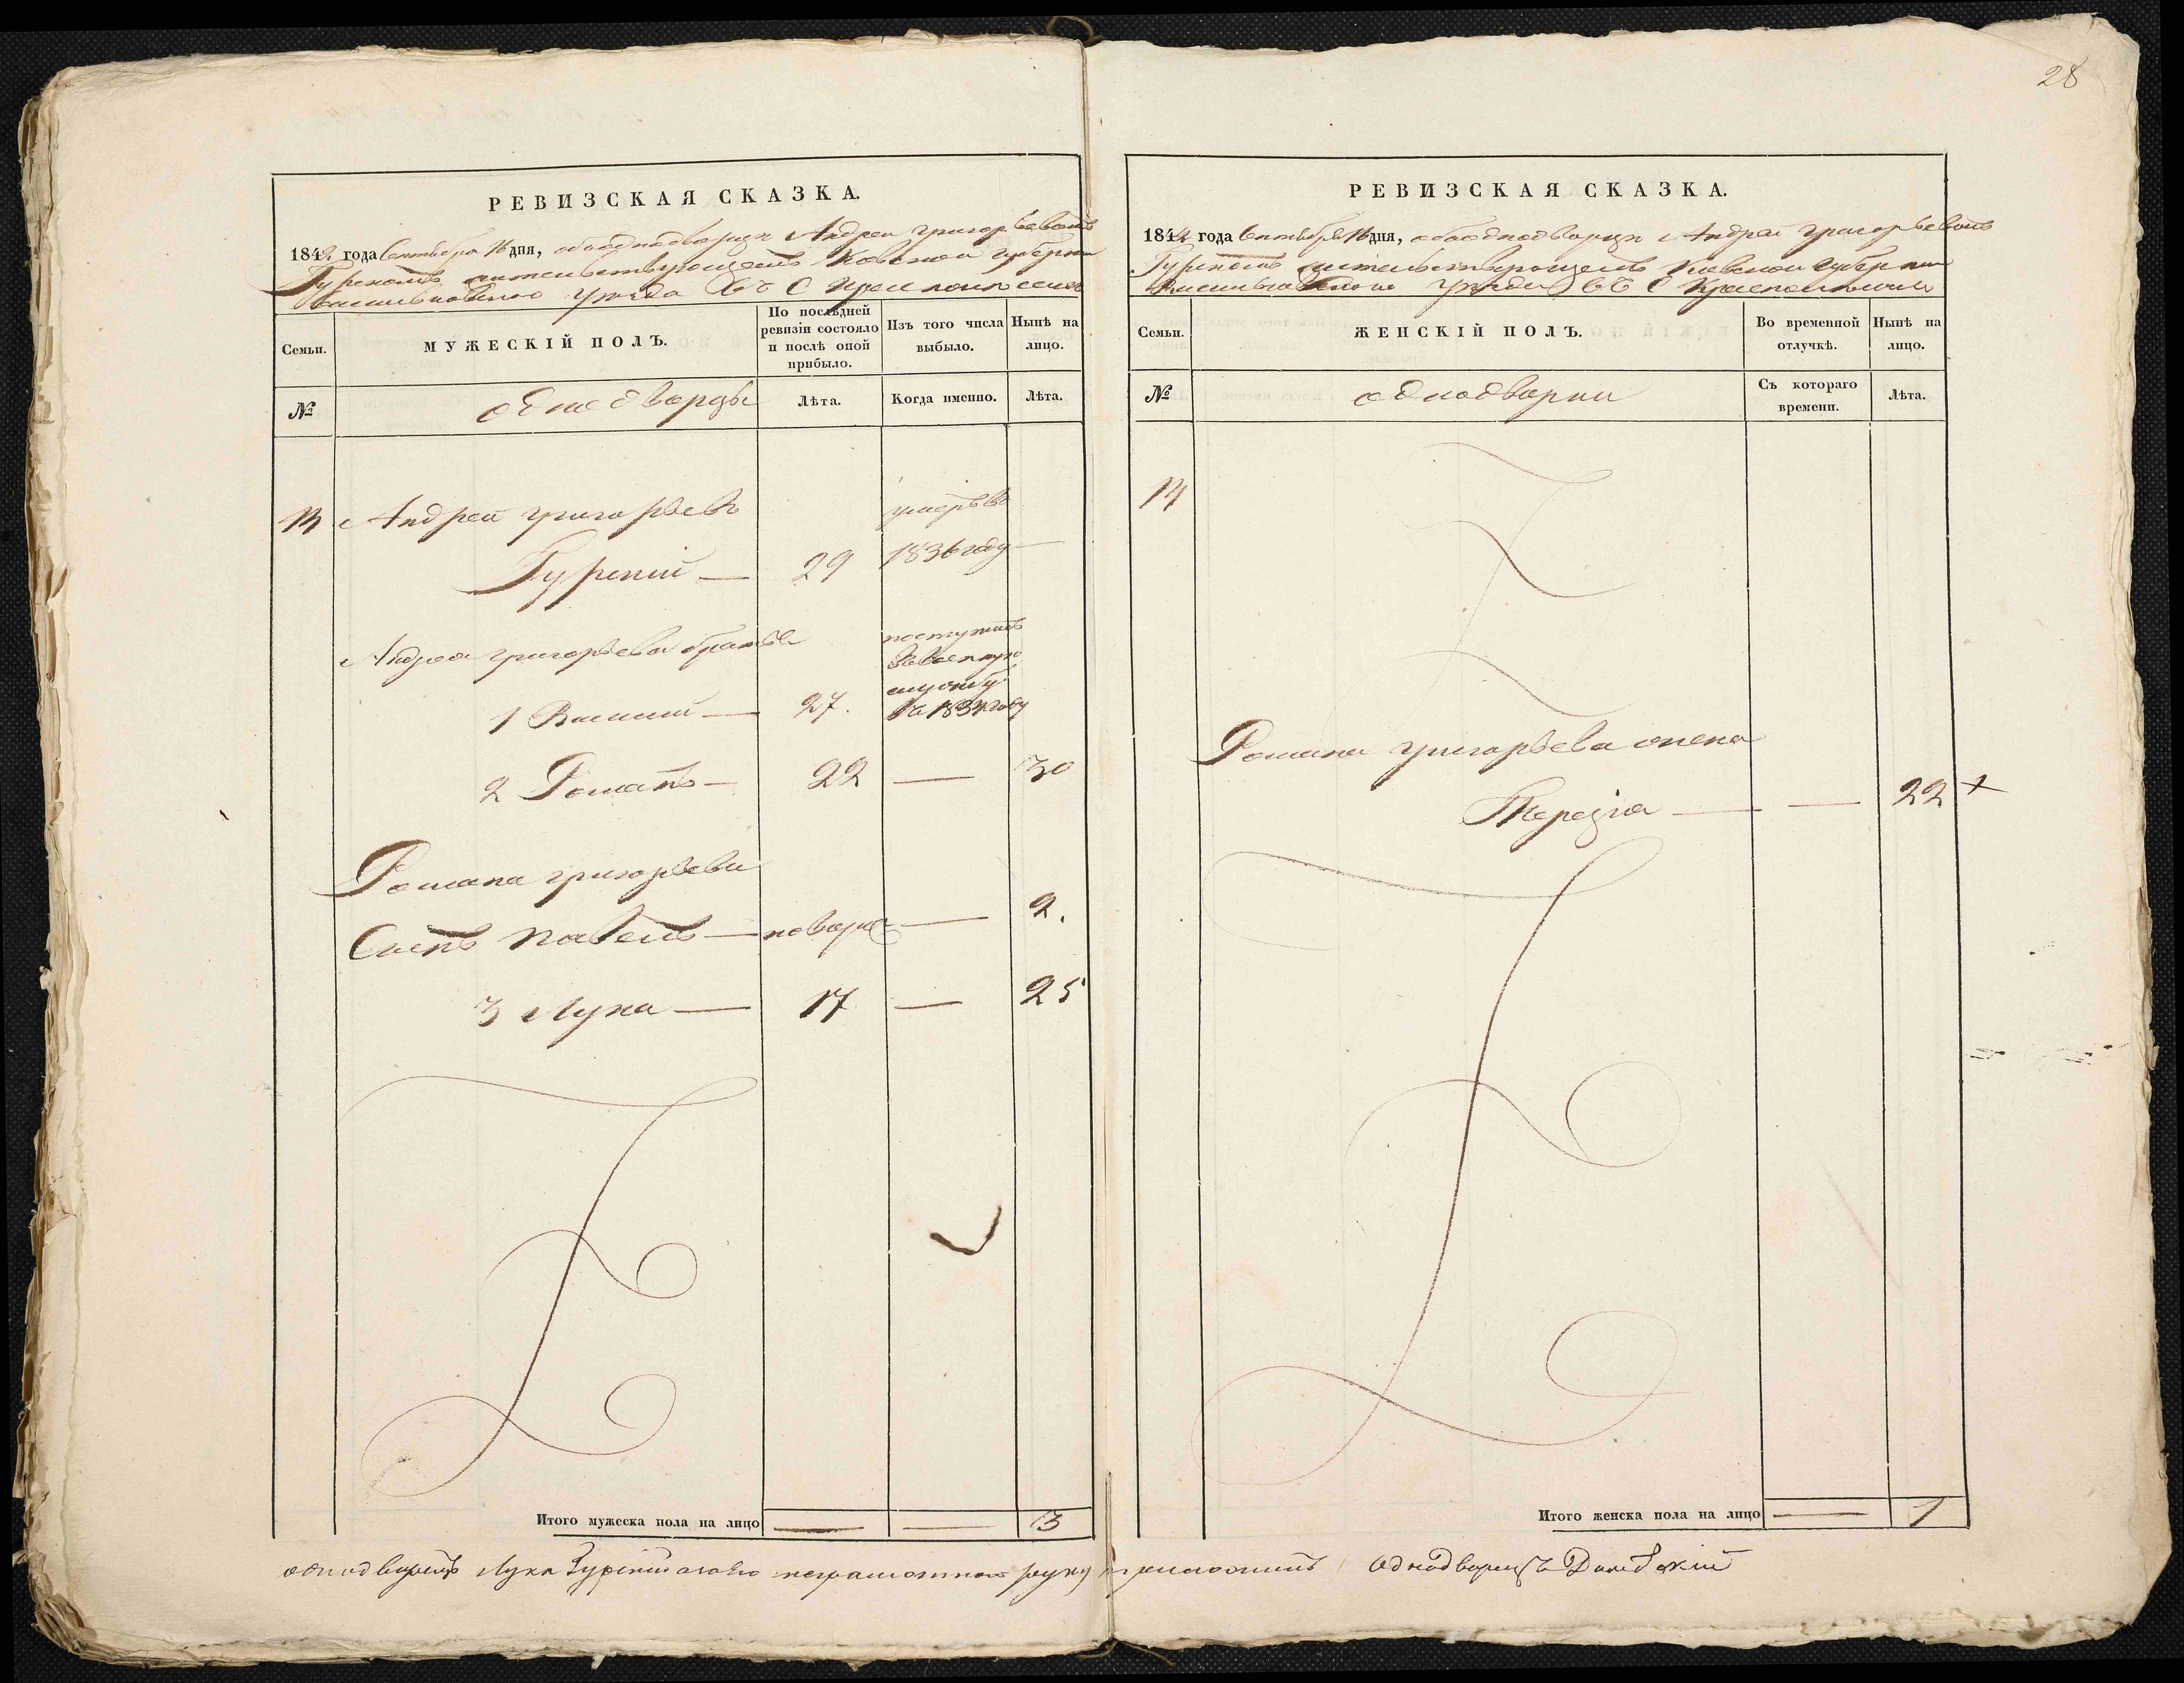 28
РЕВИЗСКАЯ СКАЗКА.
1842 года Сентября 16 дня, объ однодворце Андрее Григорьевомъ
Гурскомъ жительствующемъ Киевской губернии
Васильковского уезда въ С
МУЖЕСКІЙ ПОЛЪ.
Семьи.
По послѣдней ревизіи состояло и послѣ оной прибыло.
Изъ того числа выбыло.
Нынѣ на лицо.
№
однодворцы
Лѣта.
Когда именно.
Лѣта.
Андрей Григорьевъ
умеръ въ
Гурскій — 29 1836 году —
Андрея Григорьева братья
поступилъ
въ военную
службу
1 Василий — 27. въ 1834 году
2 Романъ — 22 — 30
Романа Григорьева
Сынъ Павелъ — новорож — 2.
3 Лука — 17 — 25
Итого мужеска пола на лицо — — 3
РЕВИЗСКАЯ СКАЗКА.
1842 года Сентября 16 дня, объ однодворце Андрее Григорьевомъ
Гурскомъ жительствующемъ Киевской Губернии
Васильковского уезда въ С
Семьи.
ЖЕНСКІЙ ПОЛЪ.
Во временной отлучкѣ.
Нынѣ на лицо.
№
однодворки
Съ котораго времени.
Лѣта.
Романа Григорьева жена
Терезия — — 22 +
Итого женска пола на лицо — 1
однодворецъ Лука Гурский а за его неграмотного руку приложилъ однодворецъ